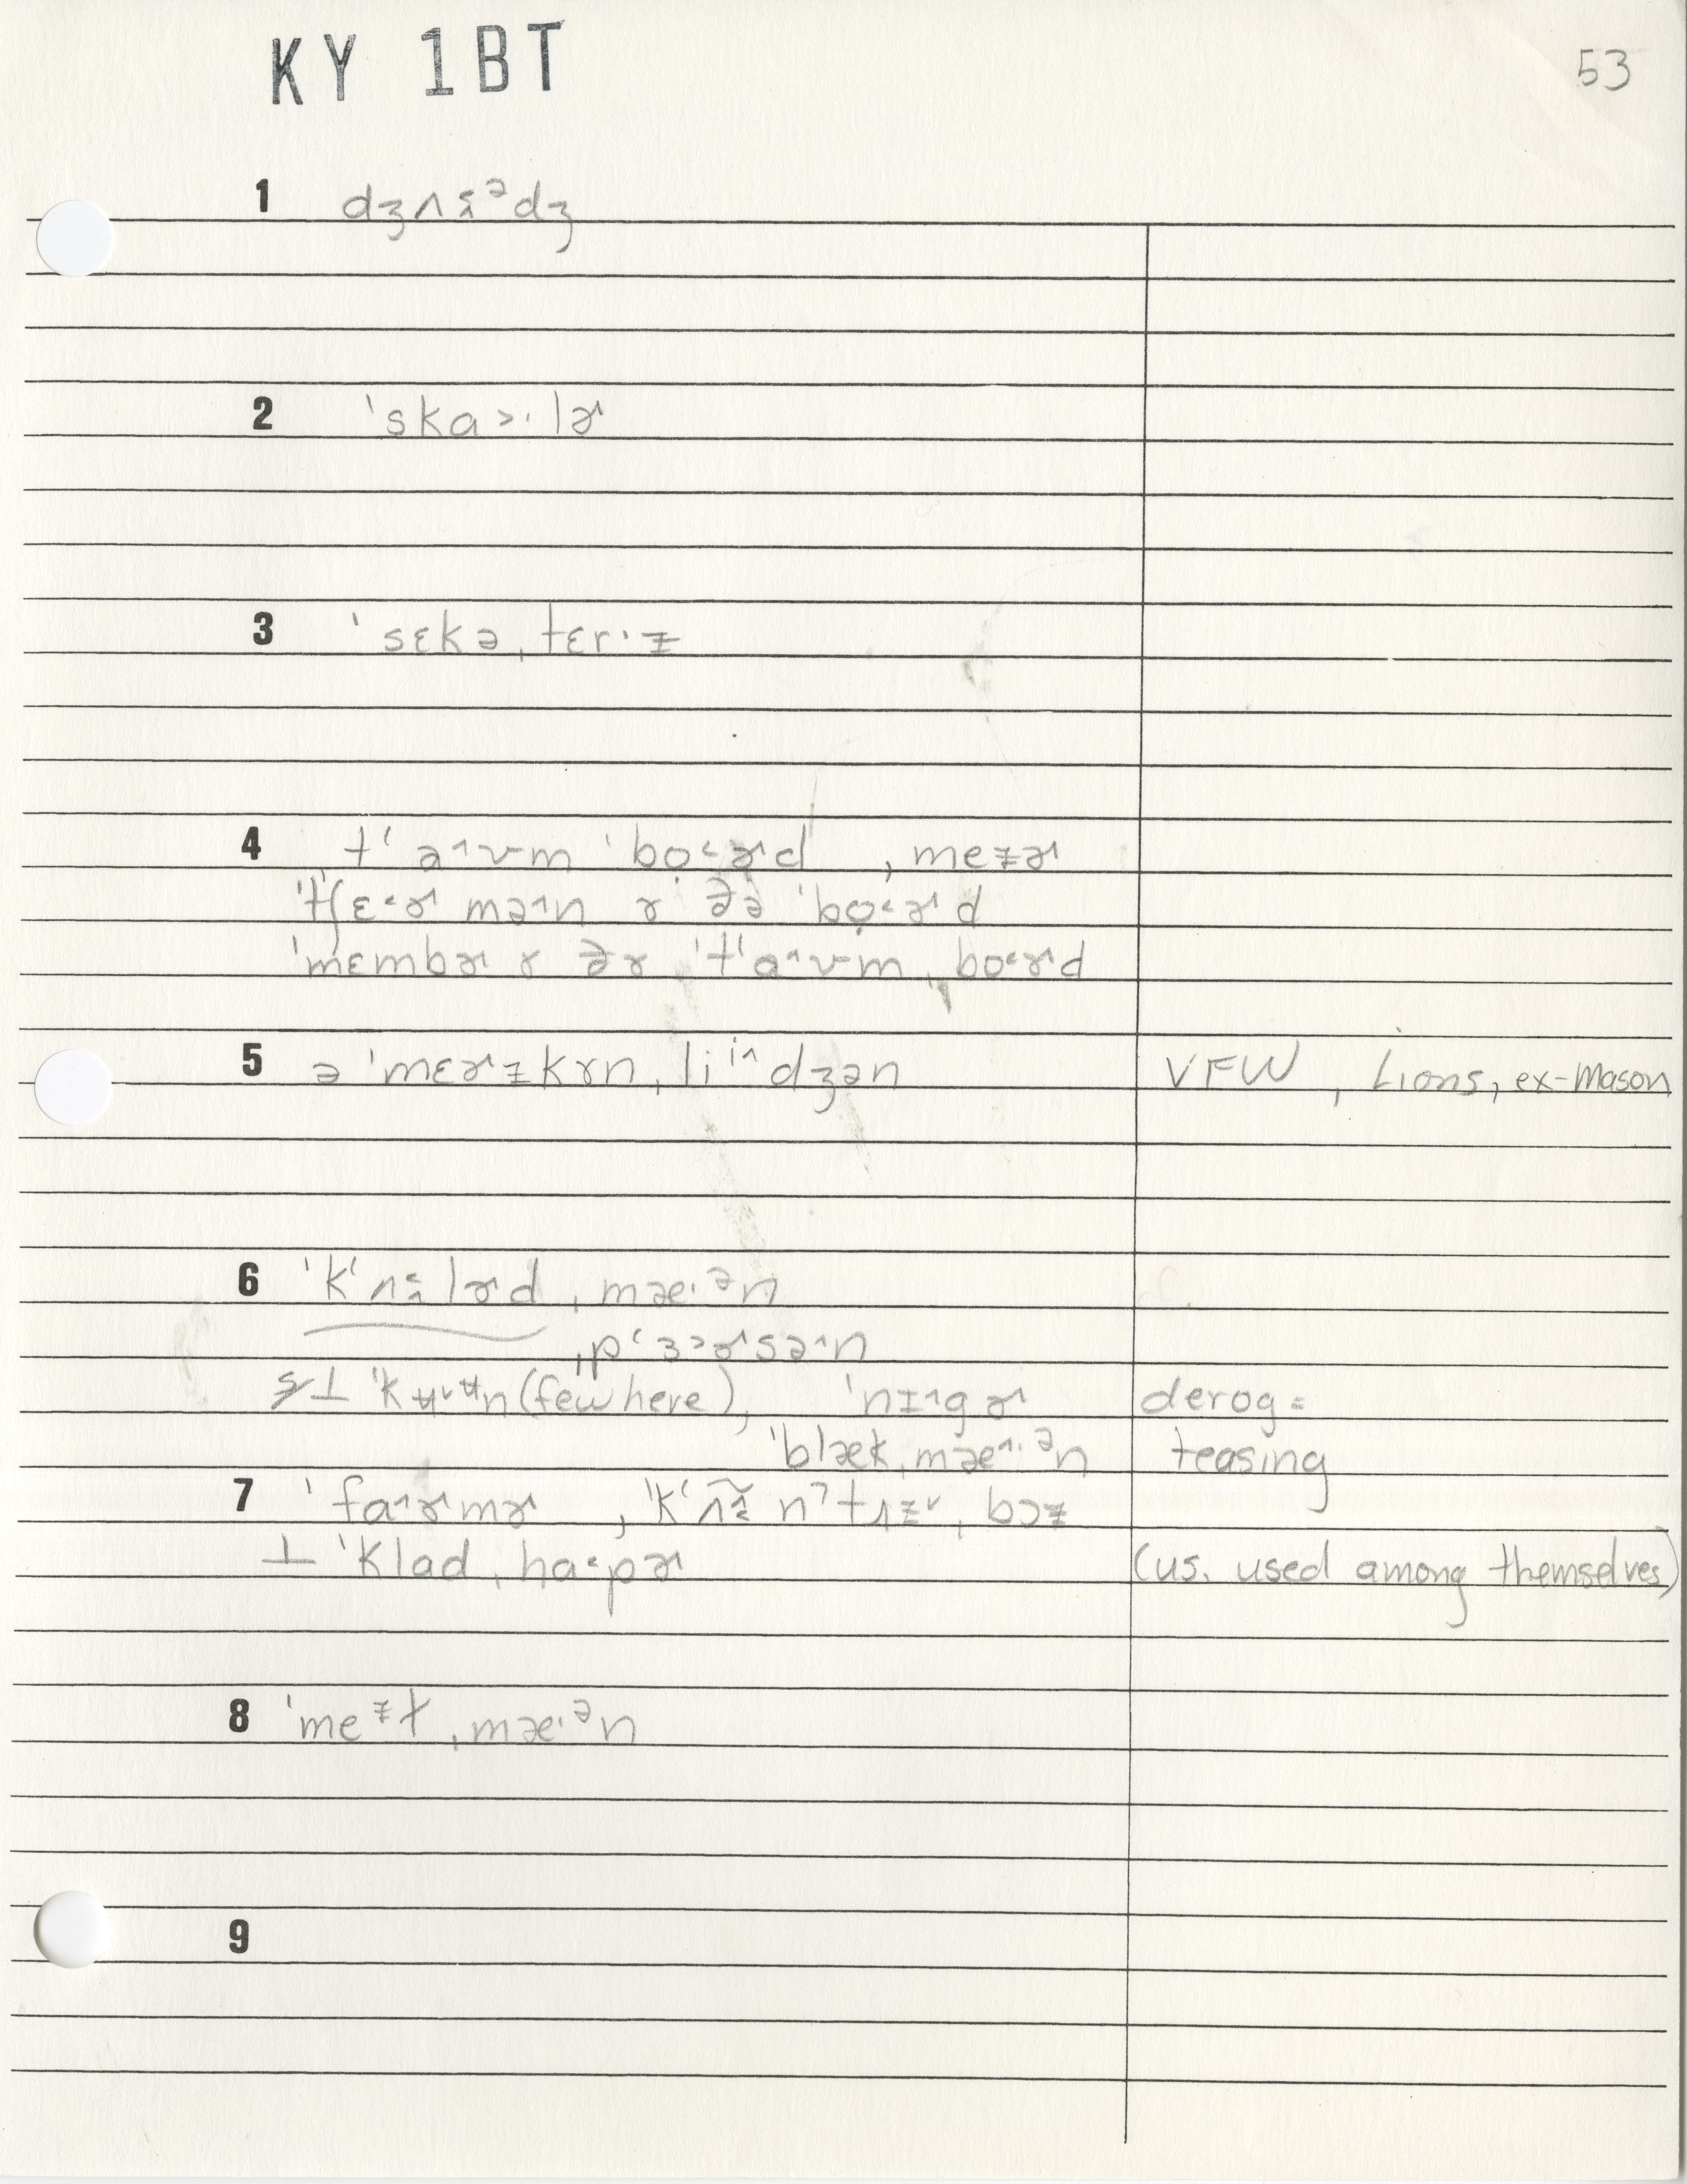 KY 1BT
53
1 dʒʌɜ̨ᵊdʒ
2 ˈskɑ˃·lɚ
3 ˈsɛkəˌtɛr·ɨ
4 ˌtʻɑ˄ʊm ˈbo̩˂ɚd, meɨɚ
ˈtʃɛ˂ɚ mə˄n ɤ ðə ˈbo̩˂ɚd
ˈmɛmbɚ ɤ ðɤ ˈtʻɑ˄ʊmˌbo˂ɚd
5 ə ˈmɛɚɨkɤnˌliⁱ˄dʒən
VFW, Lions, ex-mason
6 ˈkʻʌlɚdˌmæ·ᵊn
ˈpʻɜ˂ɚsə˄n
ˈkʉ˅ᵾn (few here), ˈnɪ˄gɚ
derog =
ˈblækˌmæ˄·ᵊn
teasing
7 ˈfɑ˄ɚmɚ, ˈkʻʌ̃n˺tɹɨ˅ˌbɔɨ
⊥ ˈklɑdˌhɑ˂pɚ
(us. used among themselves)
8 ˈmeᶤtˌmæ·ᵊn
9